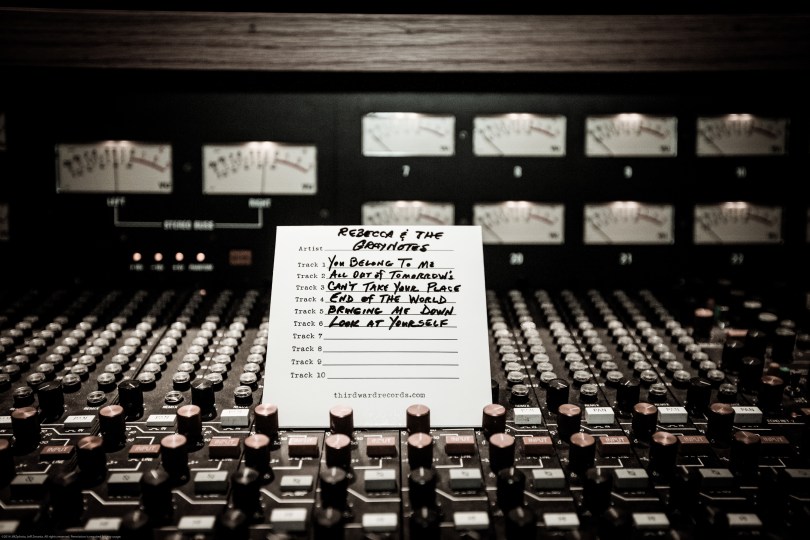 7
8
9
LEFT
RIGHT
STEREO BUSS
20
21
REBECCA & THE
Artist GRAYNOTES
Track 1 YOU BELONG TO ME
Track 2 ALL OUT OF TOMORROW'S
Track 3 CAN'T TAKE YOUR PLACE
Track 4 END OF THE WORLD
Track 5 BRINGING ME DOWN
Track 6 LOOK AT YOURSELF
Track 7
Track 8
Track 9
Track 10
thirdwardrecords.com